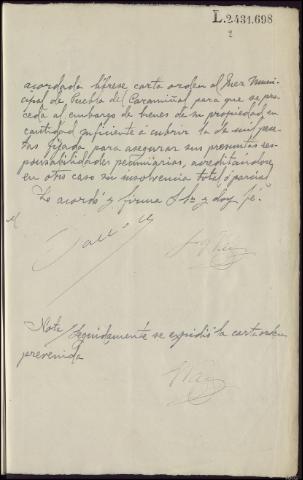 L.2431.698
2
acordada líbrese carta orden al Juez Muni-
cipal de Puebla del Caramiñal para que se pro-
ceda al embargo de bienes de su propiedad en
cantidad suficiente á cubrir la de mil pese-
tas fijada para asegurar sus presuntas res-
ponsabilidades pecuniarias, acreditándose
en otro caso su insolvencia total ó parcial
Lo acordó y firma S Sª y doy fé.
Nota/Seguidamente se expidió la carta orden
prevenida